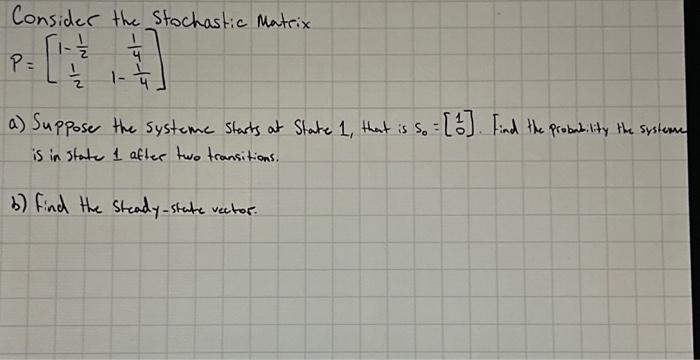 Consider the Stochastic Matrix
P = [ 1-1/2 1/4
1/2 1-1/4 ]
a) Suppose the systeme starts at State 1, that is S₀ = [1 0]. Find the probability the systeme
is in state 1 after two transitions.
b) Find the Steady-state vector.